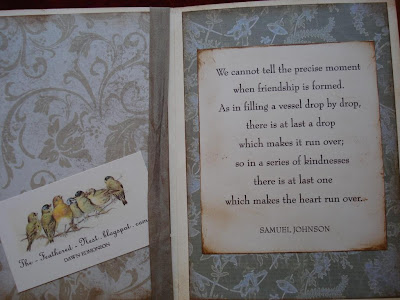 The - Feathered - Nest.blogspot.com
DAWN EDMONSON
We cannot tell the precise moment
when friendship is formed.
As in filling a vessel drop by drop,
there is at last a drop
which makes it run over;
so in a series of kindnesses
there is at last one
which makes the heart run over.
SAMUEL JOHNSON